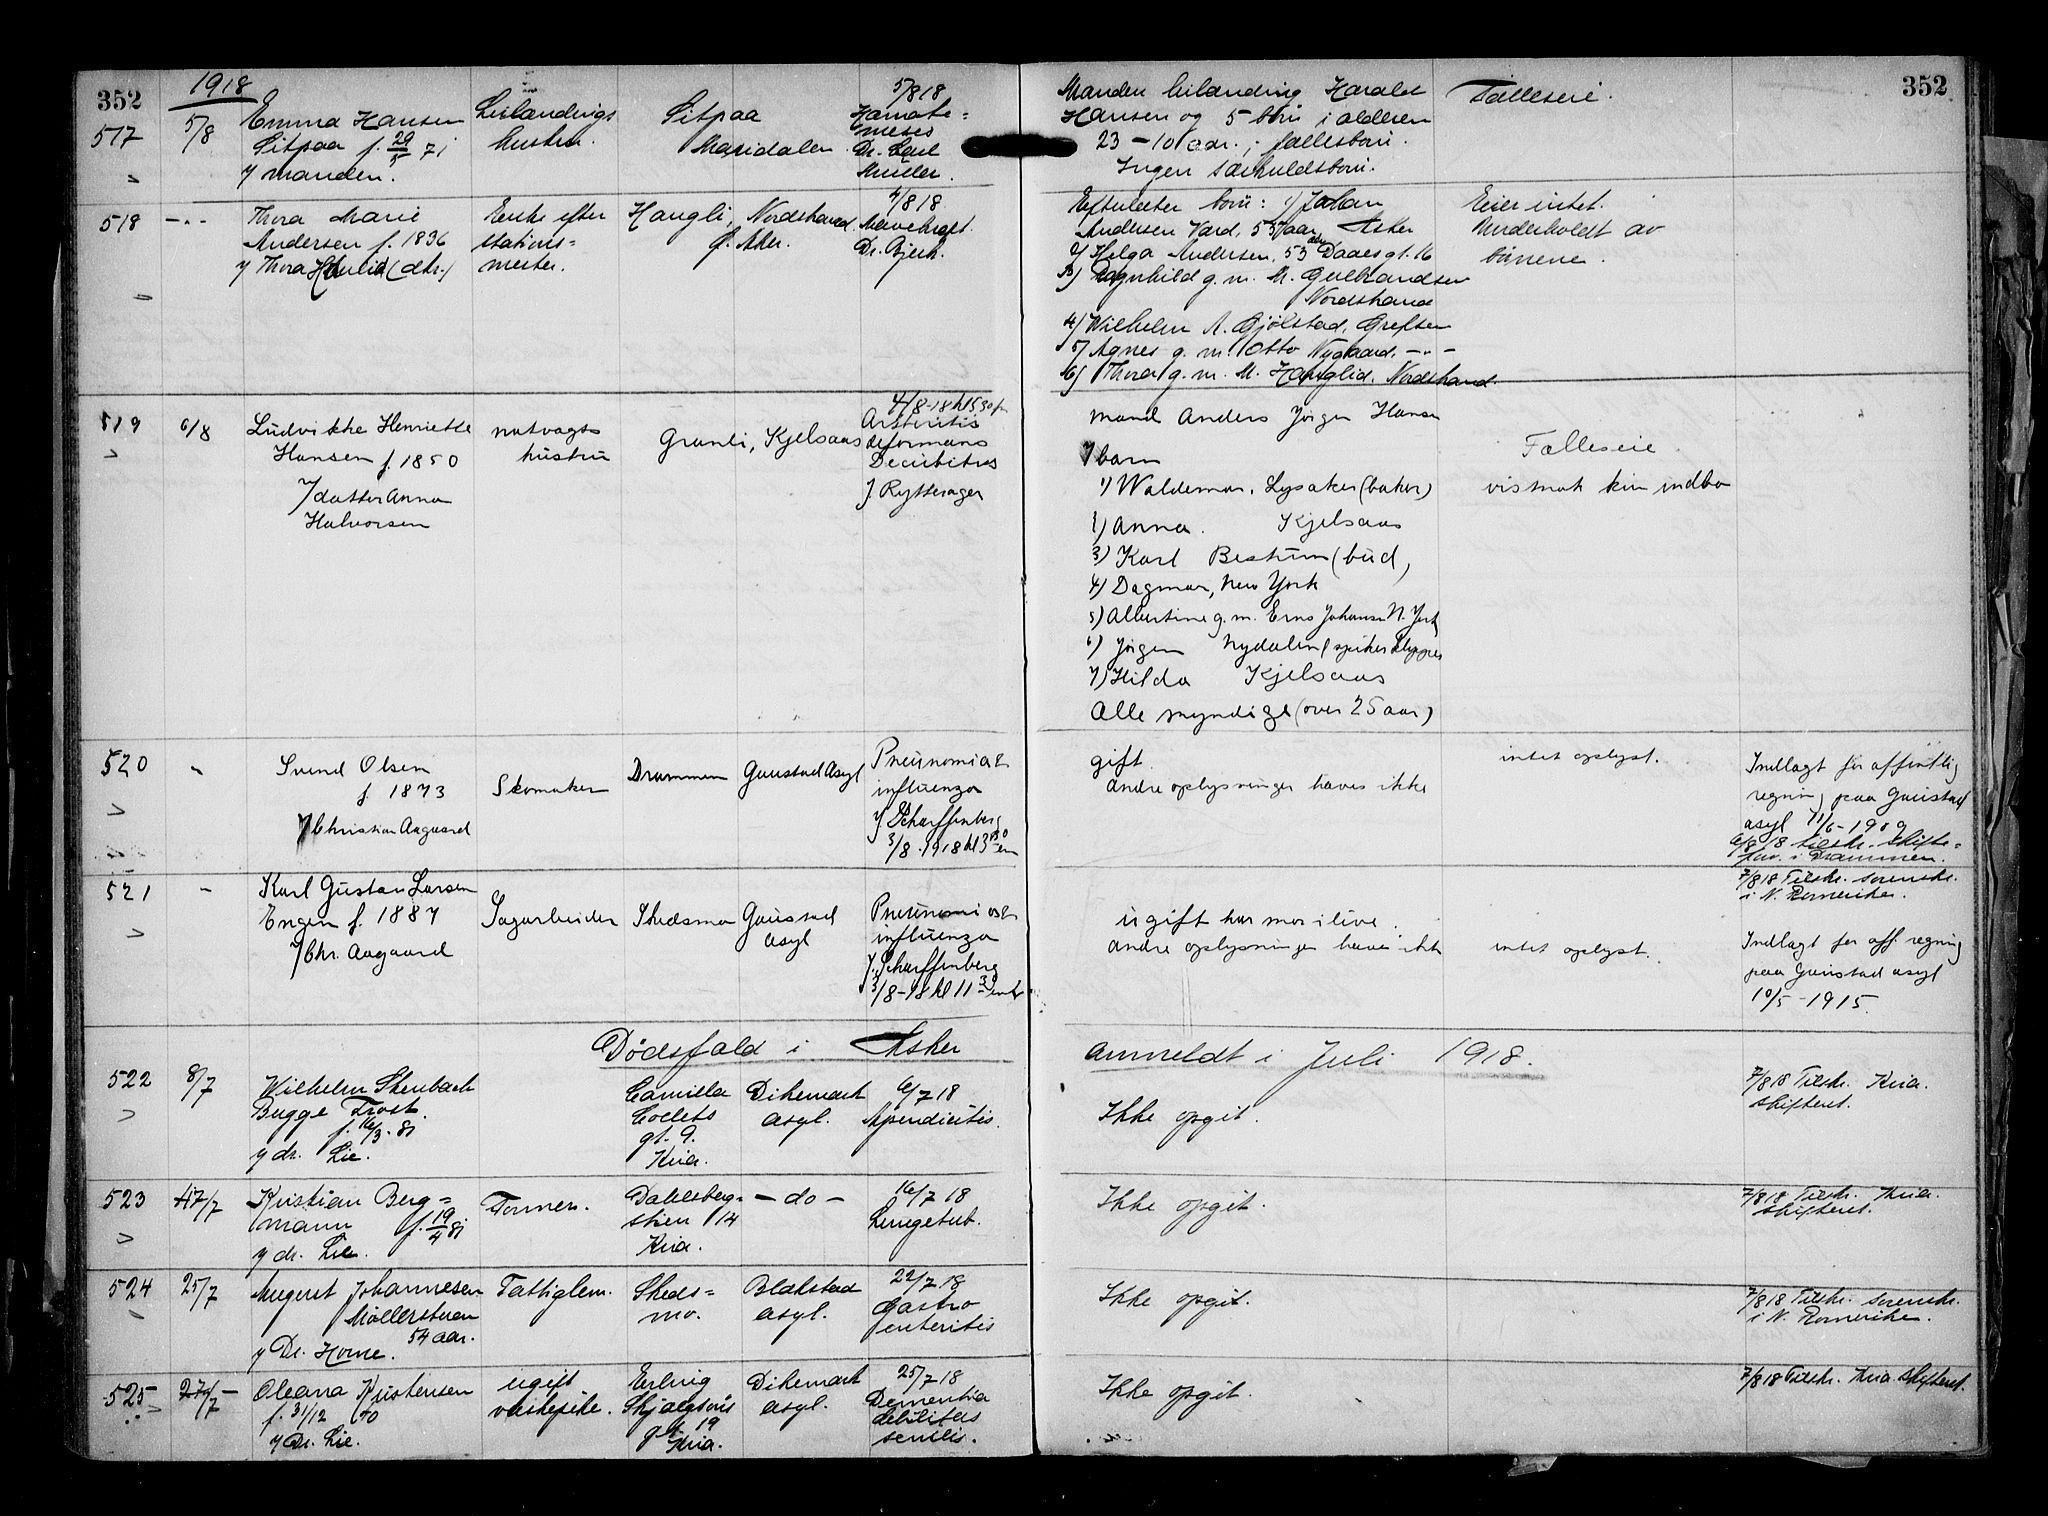 352
1918
517 5/8 Emma Hansen
Sitpaa f. 29/5 71
v/ manden.
Leilændings
hustru.
Sitpaa
Maridalen
5/8 18
Hæmate=
meses
Dr. Carl
Müller.
518 -"- Thora Marie
Andersen f. 1836
v/ Thora Hauglid (dtr.)
Enke efter
stations=
mester.
Haugli, Nordstrand
p. Aker.
4/8 18
Mavekræft.
Dr. Bjerk.
519 6/8 Ludvikke Henriette
Hansen f. 1850
v/ datter Anna
Halvorsen
natvagts
hustru
Granli, Kjelsaas
4/8-18 kl 5 30 fm
Arthritis
deformans
Decubitus
J Rytterager
520 " Svend Olsen
f. 1873
v/ Christian Aagaard
Skomaker
Drammen
Gaustad Asyl
Pneunomia &
influenza
v/ Scharffenberg
3/8-1918 kl 3 30 em
521 " Karl Gustav Larsen
Engen f. 1887
v/ Chr. Aagaard
Sagarbeider
Skedsmo
Gaustad
asyl
Pneunomi og
influenza
v. Scharffenberg
3/8-18 kl 11 30 em
Dødsfald i Asker
522 8/7 Wilhelm Stenbach
Bugge Frost.
f. 16/3-81
v/ dr. Lie.
Camilla
Collets
gt. 9.
Kria.
Dikemark
asyl.
6/7 18
Apendicitis.
523 17/7 Kristian Berg=
mann f. 19/4 81
v/ dr. Lie.
Former.
Dahlsberg=
stien 14
Kria.
- do -
16/7 18
Lungetub.
524 25/7 August Johannesen
Møllerstuen
54 aar.
v/ Dr. Horne.
Fattiglem.
Skeds=
mo.
Blakstad
asyl.
22/7 18
Gastro
enteritis
525 27/7 Oleana Kristensen
f. 31/12 40
v/ Dr. Lie.
ugift
vaskepike.
Erling
Skjalgsøns
gt 19
Kria.
Dikemark
asyl.
25/7 18
Dementia
debilitas
senilis.
352
Manden leilænding Harald
Hansen og 5 børn i alderen
23-10 aar; fællesbørn.
Ingen særkuldsbørn.
Fælleseie.
Efterlater børn: 1) Johan
Andersen Vard, 55 aar, Asker
2) Helga Andersen, 53 aar Daaes gt. 16
3) Ragnhild g. m. M. Gulbrandsen
Nordstrand
4) Wilhelm A. Gjølstad, Grefsen
5) Agnes g. m. Otto Nygaard, -"-
6) Thora g. m. M. Hauglid, Nordstrand.
Eier intet.
Underholdt av
børnene.
mand Anders Jørgen Hansen
7 barn
1) Waldemar, Lysaker (baker)
2) Anna. Kjelsaas
3) Karl Bestum (bud)
4) Dagmar, New York
5) Albertine g. m. Erns Johansen N. York
6) Jørgen Nydalen (spikerklipper
7) Hilda Kjelsaas
Alle myndige (over 25 aar)
Fælleseie
vistnok kun indbo
gift.
andre oplysninger haves ikke
intet oplyst.
Indlagt for offentlig
regning paa Gaustad
asyl 11/6-1909
6/8 18 tilskr. skifte=
forv. i Drammen.
7/8 18 Tilskr. sorenskr.
i N. Romerike.
ugift har mor ilive.
andre oplysninger haves ikke
intet oplyst.
Indlagt for off. regning
paa Gaustad asyl
10/5-1915.
anmeldt i Juli 1918.
Ikke opgit.
7/8 18 Tilskr. Kria.
skifteret.
Ikke opgit.
7/8 18 Tilskr. Kria.
skifteret.
Ikke opgit.
7/8 18 Tilskr. sorenskr.
i N. Romerike.
Ikke opgit.
7/8 18 Tilskr. Kria. skifteret.